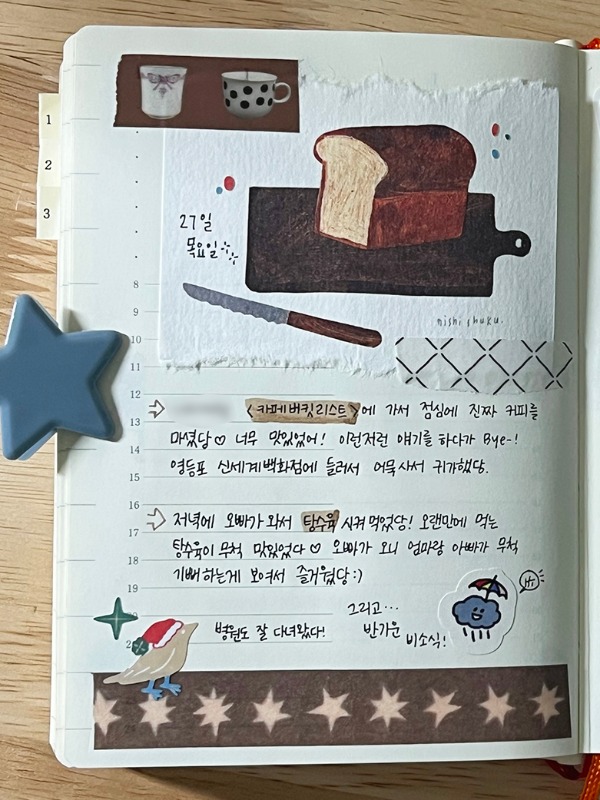 1
2
3
27일
목요일
nishi shuku.
8
9
10
11
12
13
14
15
16
17
18
19
<카페버킷리스트>에 가서 점심에 진짜 커피를
마셨당♡ 너무 맛있었어! 이런저런 얘기를 하다가 Bye~!
영등포 신세계백화점에 들러서 어묵사서 귀가했당.
저녁에 오빠가 와서 탕수육 시켜먹었당! 오랜만에 먹는
탕수육이 무척 맛있었다♡ 오빠가 오니 엄마랑 아빠가 무척
기뻐하는게 보여서 즐거웠당:)
병원도 잘 다녀왔다!
그리고...
반가운 비소식!
Hi